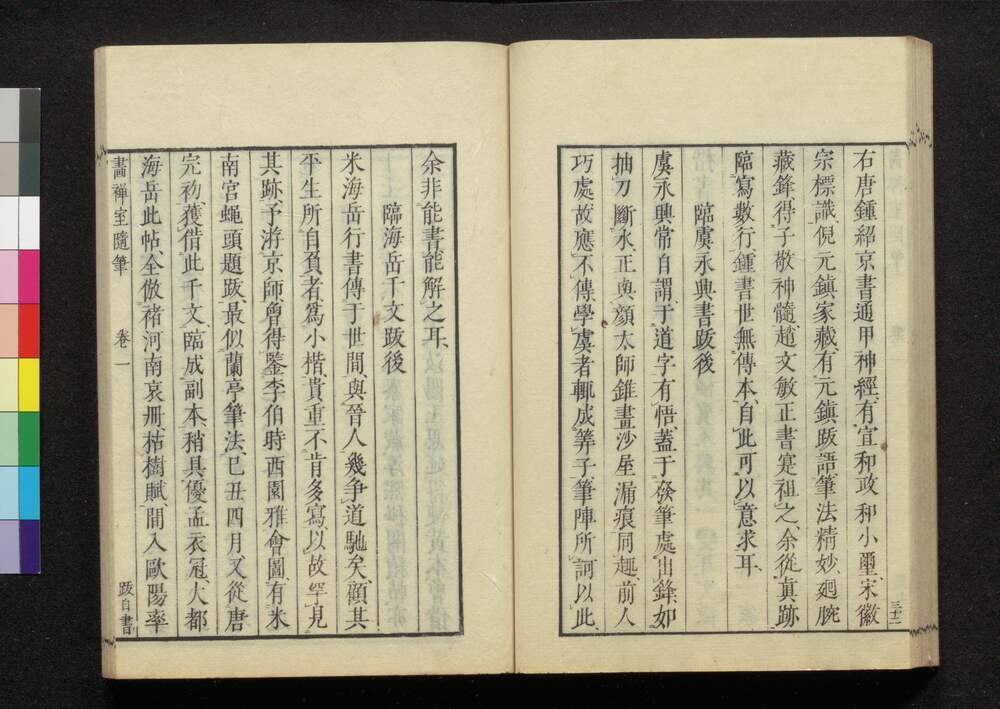 三十二
右唐鍾紹京書通甲神經有宣和政和小璽宋徽
宗標識倪元鎮家藏有元鎮跋語筆法精妙廻腕
藏鋒得子敬神髓趙文敏正書寔祖之余從眞跡
臨寫數行鍾書世無傳本自此可以意求耳
臨虞永興書跋後
虞永興常自謂于道字有悟蓋于發筆處出鋒如
抽刀斷水正與顏太師錐畫沙屋漏痕同趣前人
巧處故應不傳學虞者輒成筭子筆陣所訶以此
余非能書能解之耳
臨海岳千文跋後
米海岳行書傳于世間與晉人幾爭道馳矣顧其
平生所自負者爲小楷貴重不肯多寫以故罕見
其跡予游京師曾得鑒李伯時西園雅會圖有米
南宮蠅頭題跋最似蘭亭筆法己丑四月又從唐
完初獲借此千文臨成副本稍具優孟衣冠大都
海岳此帖全倣褚河南哀冊枯樹賦間入歐陽率
畫禪室隨筆 卷一 跋自書